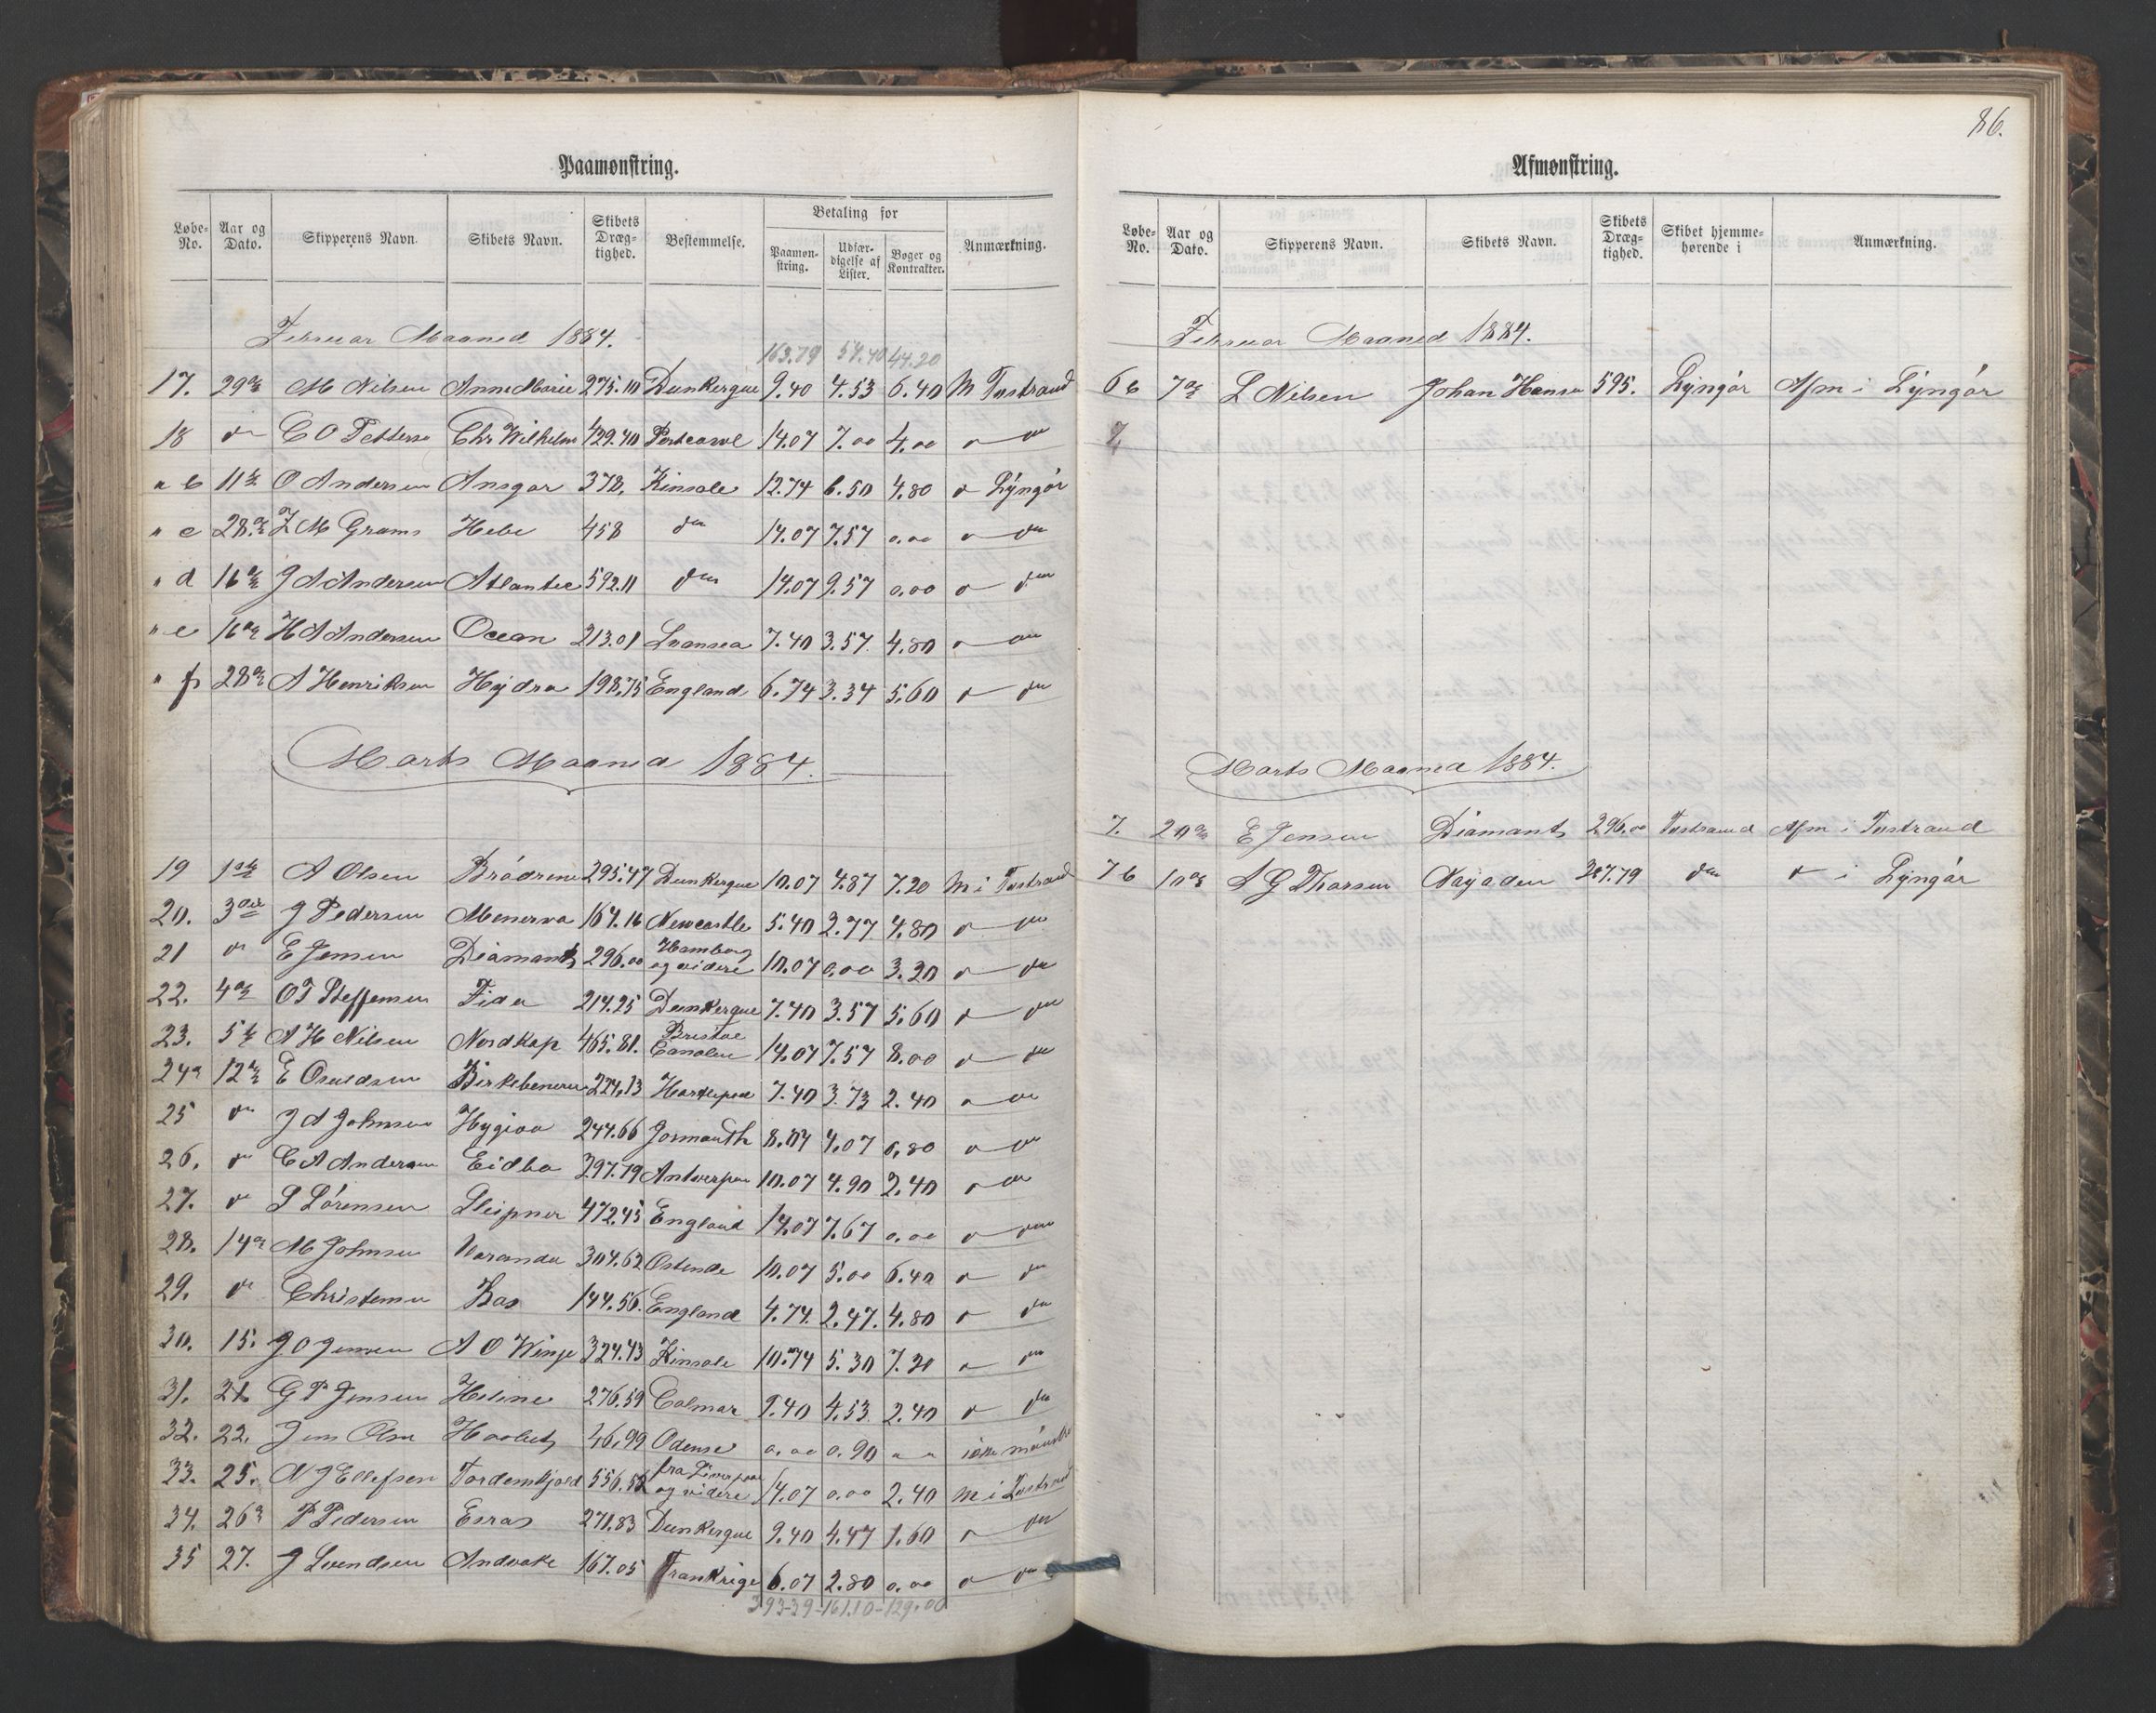 Paamønstring.
Løbe-No. Aar og Dato. Skipperens Navn. Skibets Navn. Skibets Dræg-tighed. Bestemmelse. Betaling for Paamøn-string. Udfær-digelse af Lister. Bøger og Kontrakter. Anmærkning.
Februar Maaned 1884.
163.79 54.40 44.20
17. 29 M Nilsen Anne Marie 275.10 Dunkerque 9.40 4.53 6.40 M Tvstrand
18 do C O Petterse Chr Wilhelm 429.40 14.07 7.00 4.00
" b 11 O Andersen Ansgar 378, Kinsale 12.74 6.50 4.80 Lyngör
" c 28 Z M Grams Hebe 458 do 14.07 7.57 0.00
" d 16 J A Andersen Atlantic 592.11 do 14.07 9.57 0.00
" e 16 H A Andersen Ocean 213.01 Svansea 7.40 3.57 4.80
" f 28 A Henriksen Hydra 198,75 England 6.74 3.34 5.60
Marts Maaned 1884.
19 1ste A Olsen Brödrene 295.47 Dunkerque 10.07 4.87 7.20 M i Tvstrand
20. 3die J Pedersen Menerva 164.16 Newcastle 5.40 2.77 4.80
21 do E Jensen Diamant 296.00 Hamborg og videre 10.07 0.00 3.20
22. 4 O T Steffensen Fida 214.25 Dunkerque 7.40 3.57 5.60
23. 5te A H Nilsen Nordkap 465.81. Bristol Canalen 14.07 7.57 8.00
24 12 E Osuldsen Birkebeneren 224,13 Hartlepool 7.40 3.73 2.40
25 do J A Johnsen Hygiea 244.66 Jarmauth 8.07 4.07 0,80
26. do C A Andersen Eidba 297.79 Antverpen 10.07 4.90 2.40
27. do S Sörensen Sleipner 472,45 England 14.07 7.67 0.00
28. 14 M Johnsen Varanda 304.62 Ostende 10.07 5.00 6.40
29. do Christensen 144.56. England 4.74. 2.47. 4.80
30. 15. J O Jensen A O Winje 324.43 Kinsale 10.74 5.30 7.20
31. 21 G P Jensen Heline 276.59 Colmar 9.40 4.53 2.40
32. 22. Jens Olsen Haabet 46,99 Odense 0.00 0.90 ikke mönstret
33. 25. N J Ellefsen Tordenskjold 556.52 fra Liverpool og videre 14.07 0.00 2.40 M i Tvstrand
34. 26 P Pedersen Esras 271.83 Dunkerque 9.40 4.47 1.60
35 27. J Svendsen Andvake 167.05 Frankrige 6.07 2.80 0.00
393-39-161.10-129.00
86.
Afmønstring.
Løbe-No. Aar og Dato. Skipperens Navn. Skibets Navn. Skibets Dræg-tighed. Skibet hjemme-hørende i Anmærkning.
Februar Maaned 1884.
6 b 7 L Nilsen Johan Hansen 595. Lyngör Afm i Lyngör
7
Marts Maaned 1884.
7. 20 E Jensen Diamant 296.00 Tvstrand Afm i Tvstrand
7 b 10 A G Thorsen Nayaden 327.79 do i Lyngör